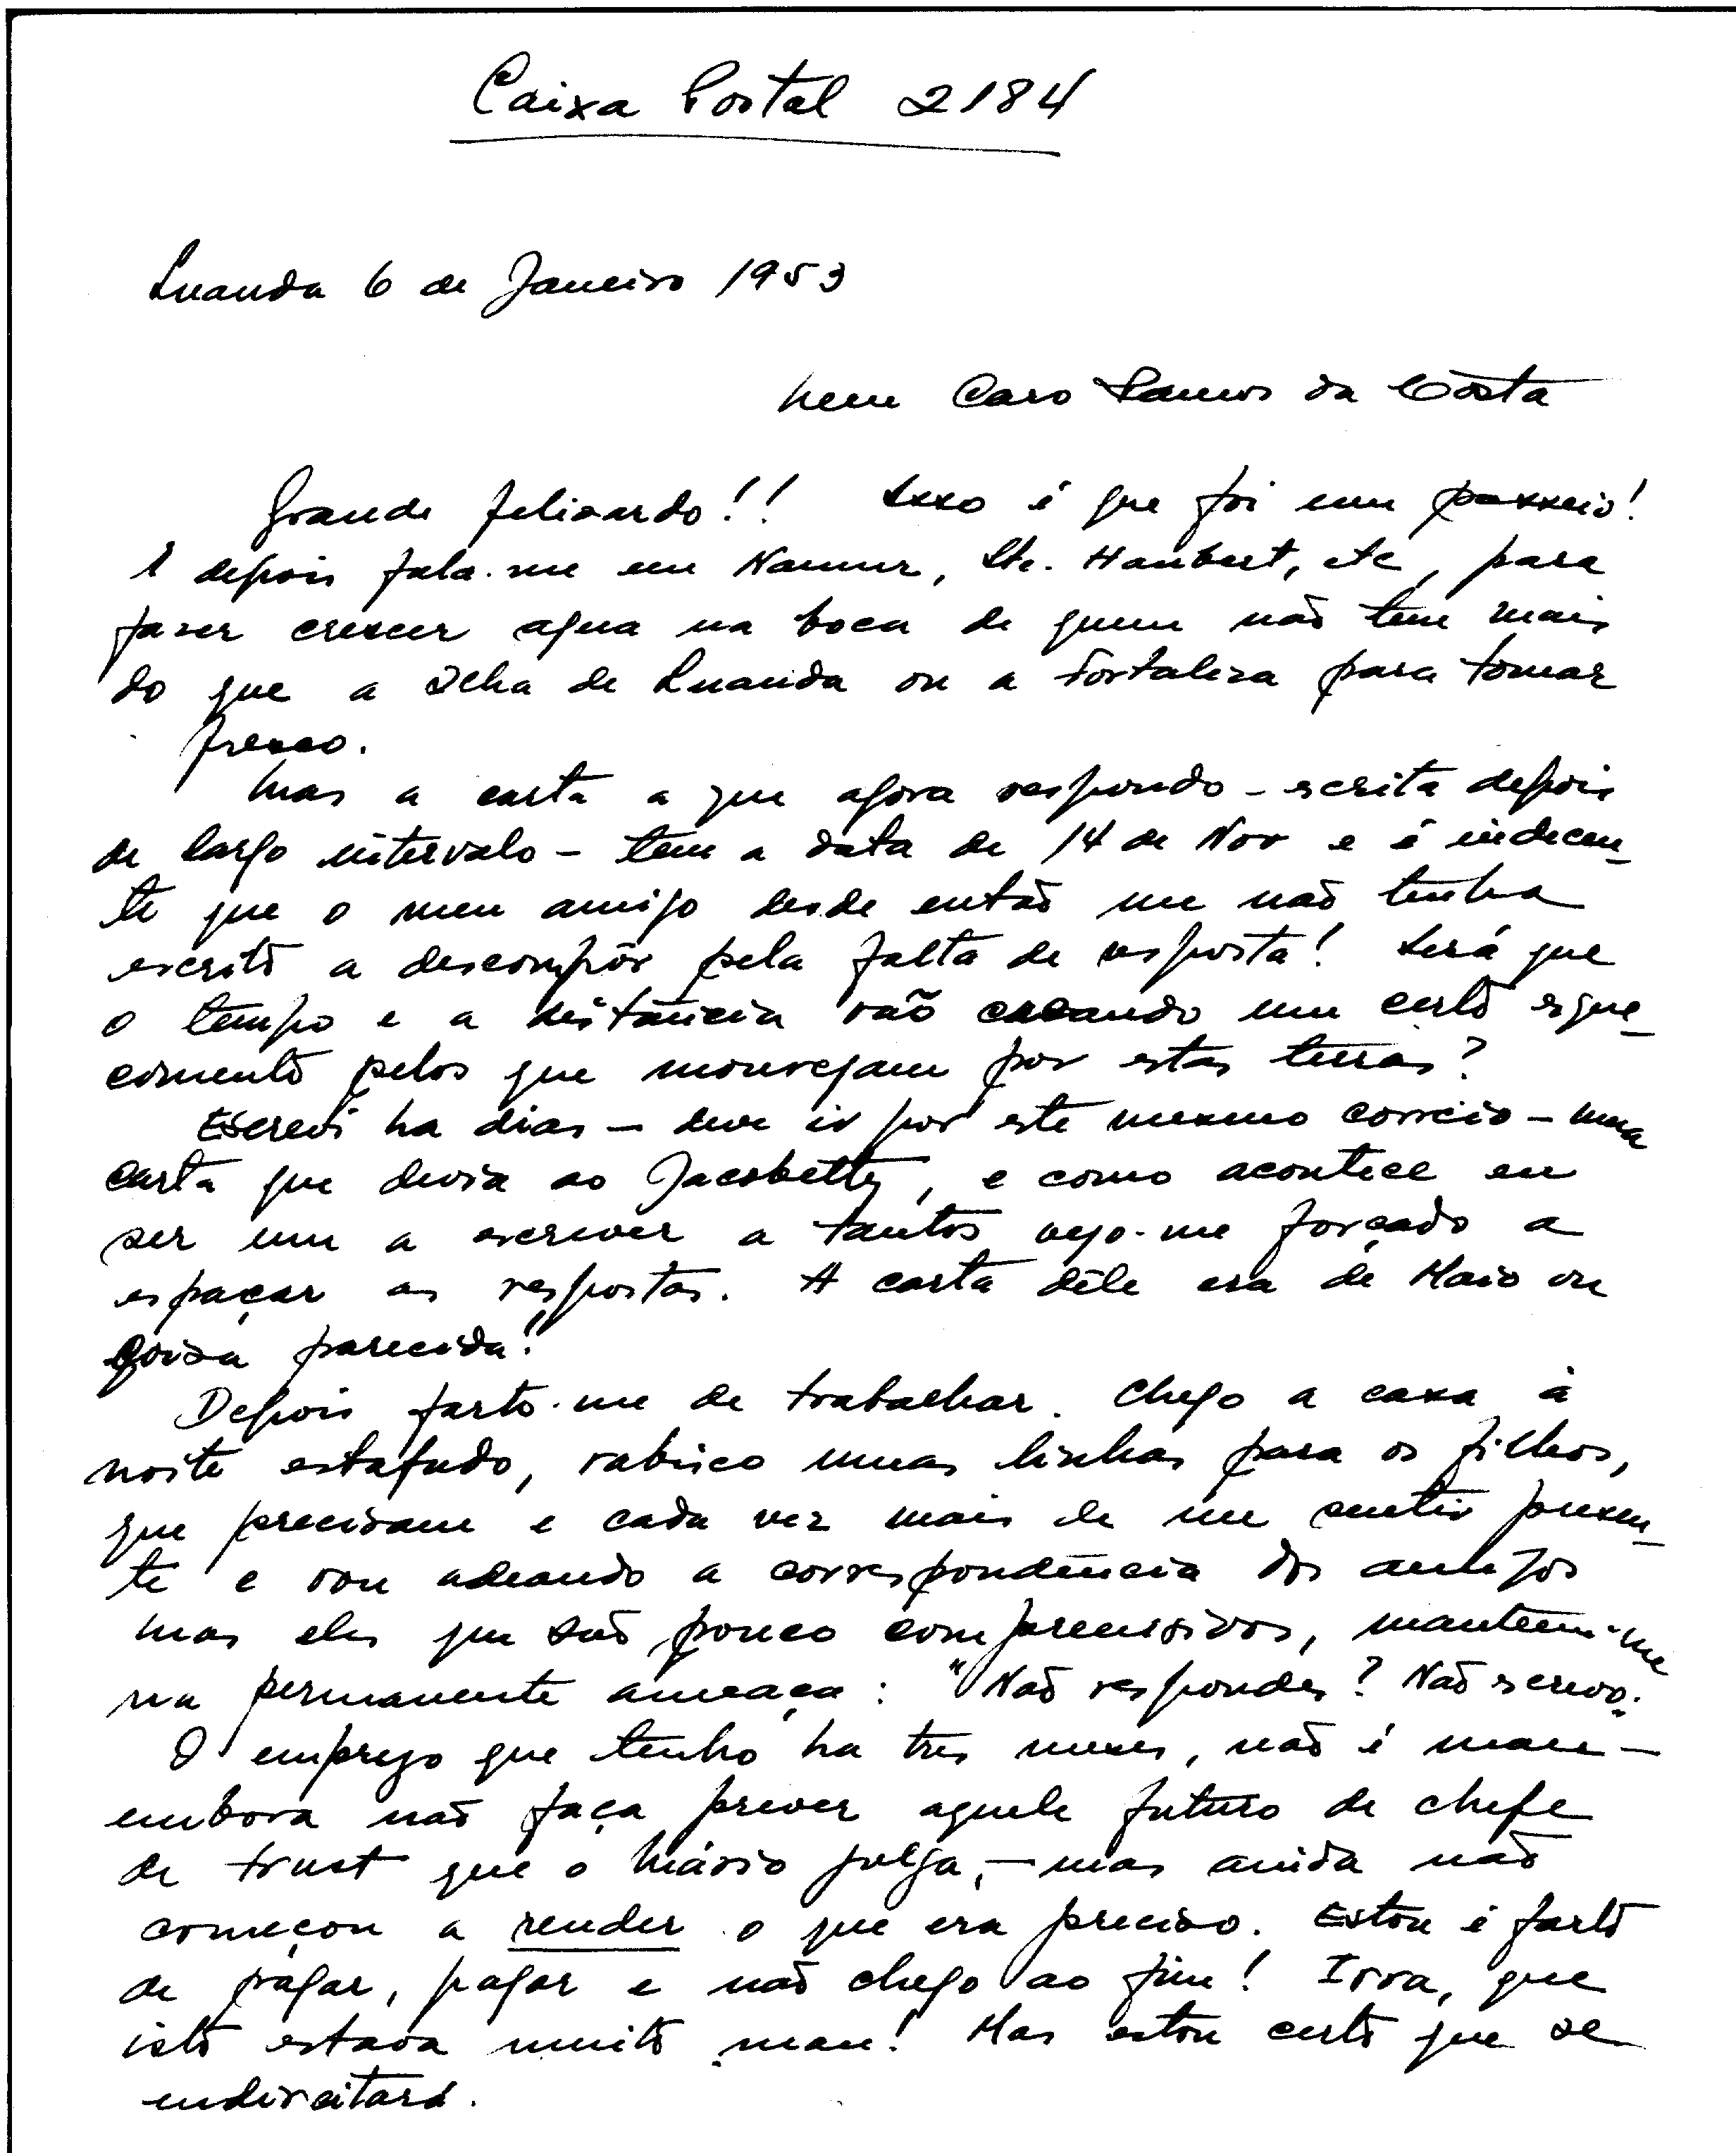 Caixa Postal 2184
Luanda 6 de Janeiro 1953
Meu Caro Ramos da Costa
Grande felizardo!! Isso é que foi um passeio!
E depois fala-me em Namur, St. Haubert, etc, para
fazer crescer agua na boca de quem não tem mais
do que a Ilha de Luanda ou a Fortaleza para tomar
fresco.
Mas a carta a que agora respondo - escrita depois
de largo intervalo - tem a data de 14 de Nov e é indecen-
te que o meu amigo desde então me não tenha
escrito a descompôr pela falta de resposta! Será que
o tempo e a distância vão creando um certo esque-
cimento pelos que mourejam por estas terras?
Escrevi ha dias - deve ir por este mesmo correio - uma
carta que devia ao Jacobetty, e como acontece eu
ser um a escrever a tantos vejo-me forçado a
espaçar as respostas. A carta dêle era de Maio ou
coisa parecida!
Depois farto-me de trabalhar. Chego a casa à
noite estafado, rabisco umas linhas para os filhos,
que precisam e cada vez mais de me sentir presen-
te e vou adeando a correspondência dos amigos
mas eles que são pouco compreensivos, manteem-me
na permanente ameaça: "Não respondes? Não screvo."
O emprego que tenho ha tres meses, não é mau -
embora não faça prever aquele futuro de chefe
de trust que o Mário julga, - mas ainda não
começou a render o que era preciso. Estou é farto
de pagar, pagar e não chego ao fim! Irra, que
isto estava muito mau! Mas estou certo que se
endireitará.